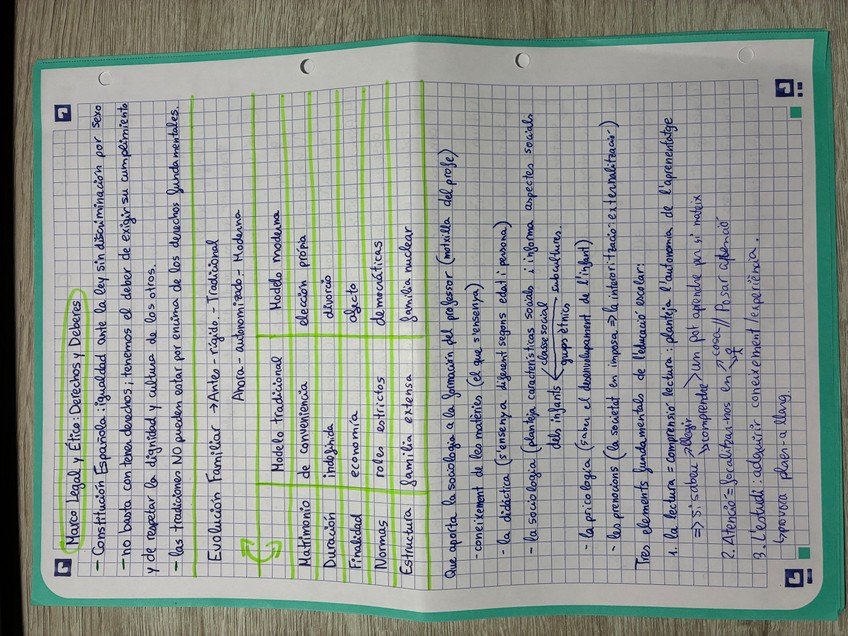 Marco Legal y Ético: Derechos y Deberes
- Constitución Española: igualdad ante la ley sin discriminación por sexo
- no basta con tener derechos; tenemos el deber de exigir su cumplimiento
y de respetar la dignidad y cultura de los otros.
- las tradiciones NO pueden estar por encima de los derechos fundamentales.
Evolución Familiar → Antes - rígido. - Tradicional
Ahora - autonomizado - Moderna
Modelo tradicional Modelo moderna
Matrimonio de conveniencia elección própia
Duración indefinida divorcio
Finalidad economía afecto
Normas roles estrictos democráticas
Estructura familia extensa familia nuclear
Que aporta la sociologia a la formación del professor (motxilla del profe)
- coneixement de les matèries (el que s'ensenya)
- la didàctica (s'ensenya diferent segons edat i persona)
- la sociologia (planteja características socials i informa aspectes socials
dels infants classe social subcultures.
grups ètnics
- la psicologia (saber el desenvolupament de l'infant)
- les prenocions (la societat en imposa → la interiorització: externalització)
Tres elements fonamentals de l'educació escolar:
1. la lectura = comprensió lectora: planteja l'autonomia de l'aprenentatge
=> Si sabeu llegir > un pot aprendre per si mateix
comprendre
2. Atenció = focalitzar-nos en cosa // Posar atenció
3. L'estudi: adquirir coneixement / experiència.
plaer a llarg.